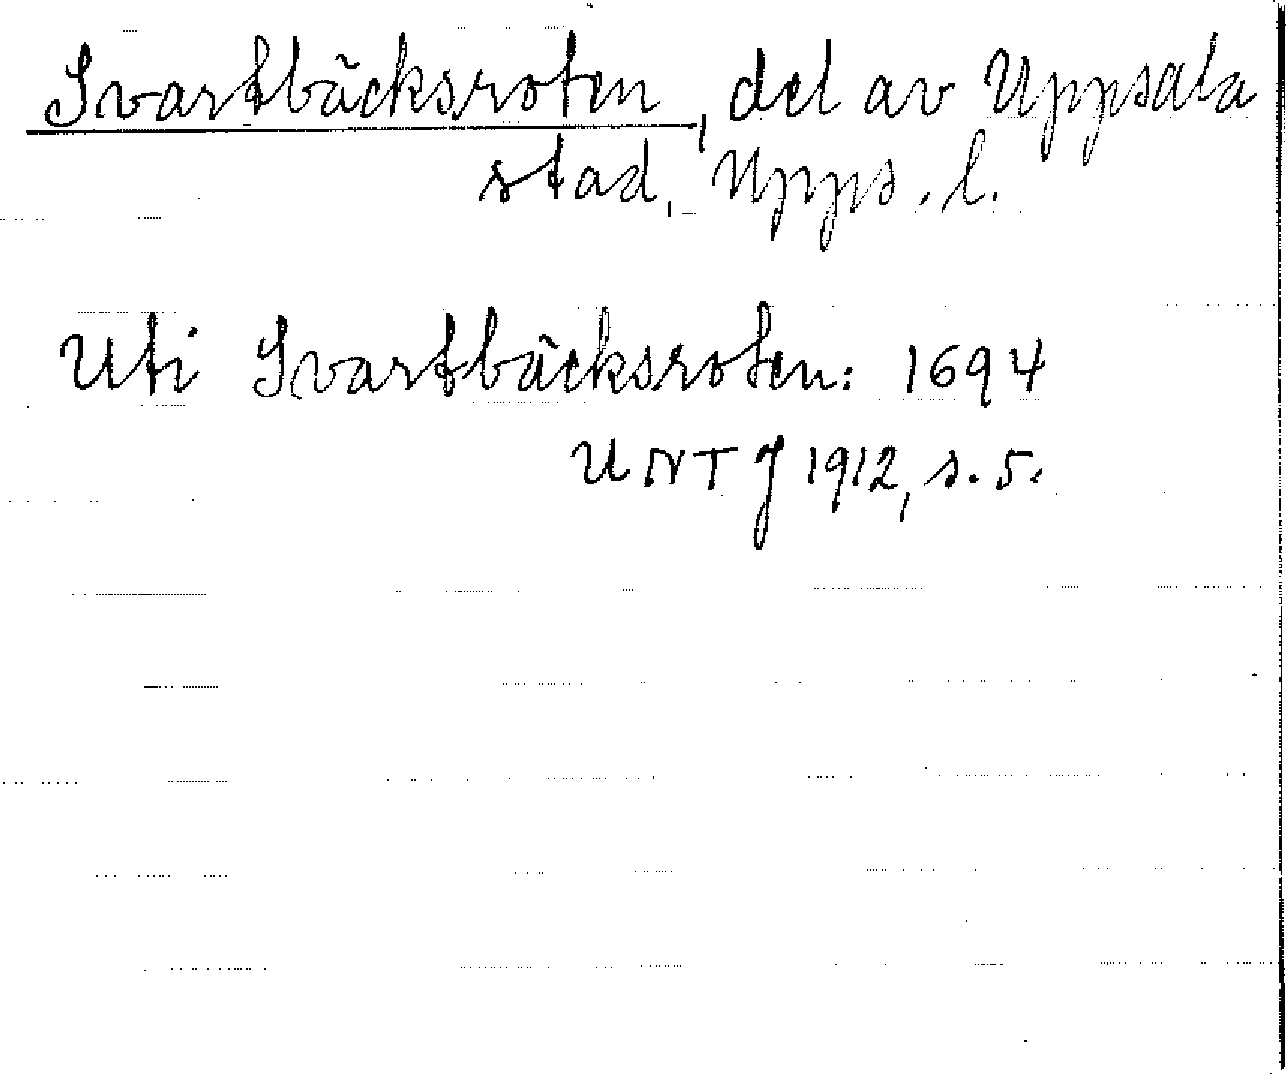 Svartbäcksroten, del av Uppsala
stad, Upps. l.
Uti Svartbäcksroten: 1694
UNTJ 1912, s. 5.